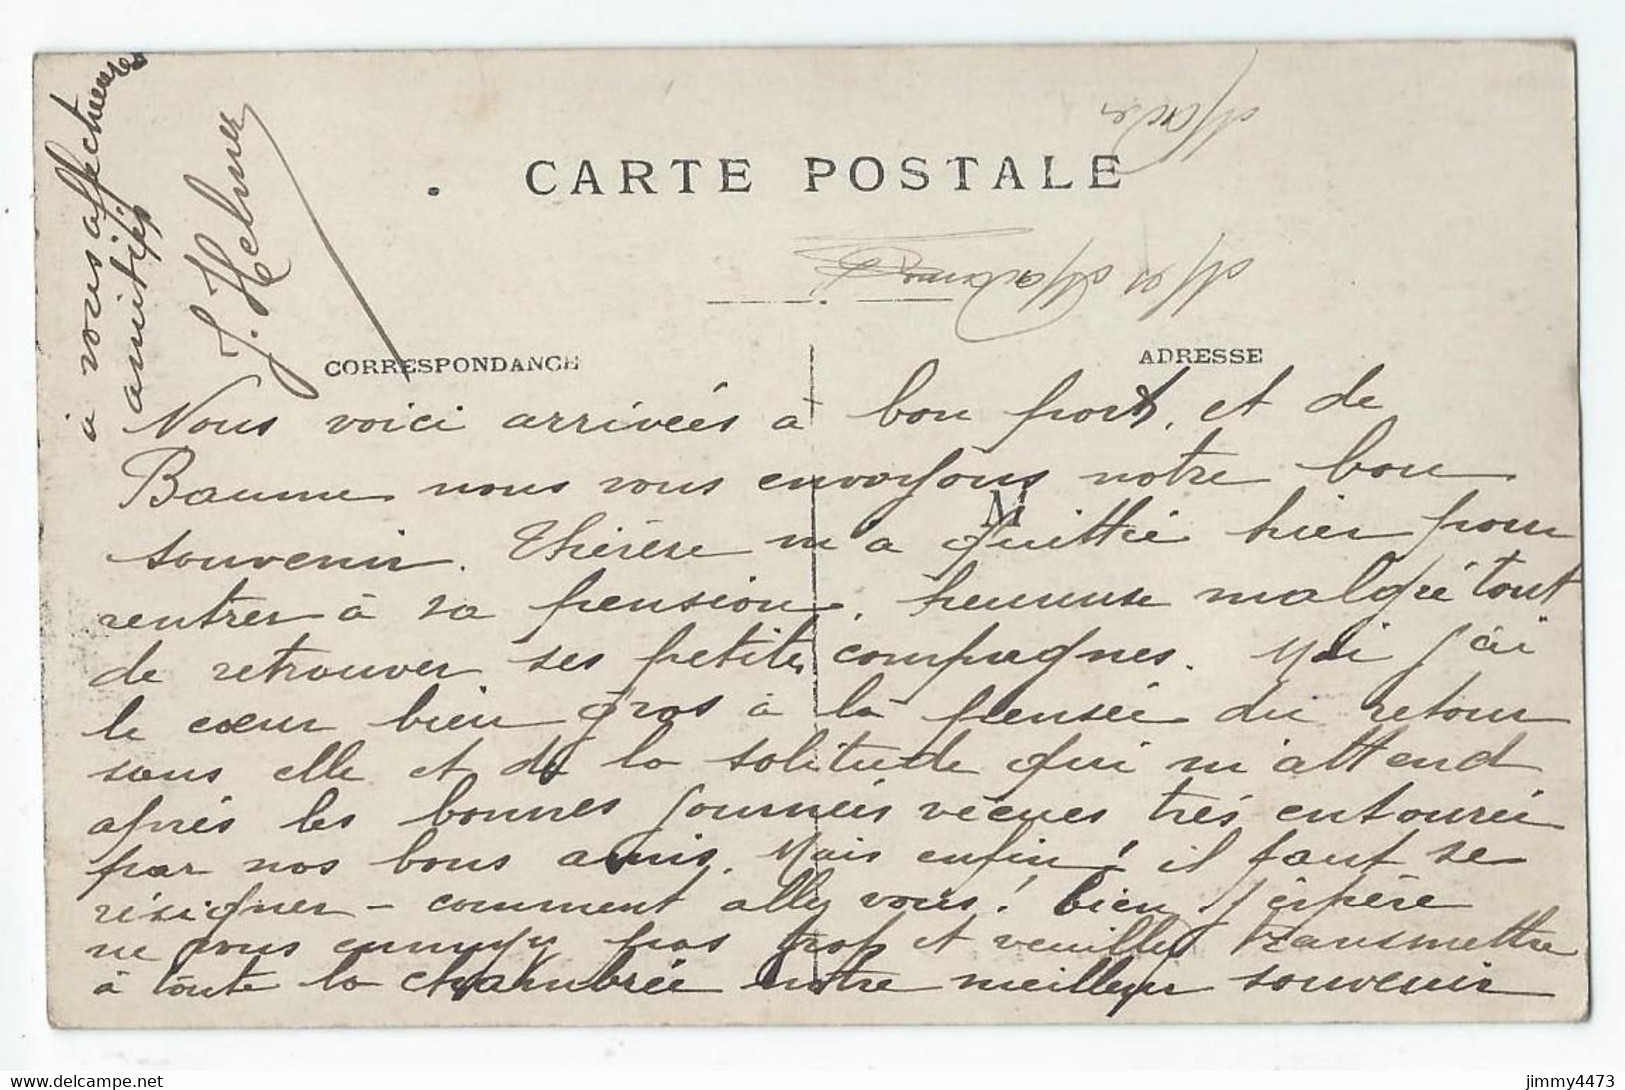 CARTE POSTALE
CORRESPONDANCE
ADRESSE
M
Nous voici arrivées à bon port, et de
Baume nous vous envoyons notre bon
souvenir. Thérèse m'a quittée hier pour
rentrer à sa pension, heureuse malgré tout
de retrouver ses petites compagnes. Moi j'ai
le cœur bien gros à la pensée du retour
sans elle et de la solitude qui m'attend
après les bonnes journées vécues très entourée
par nos bons amis. Mais enfin! il faut se
résigner - comment allez vous! bien j'espère
ne vous ennuyez pas trop et veuillez transmettre
à toute la chambrée notre meilleur souvenir
à vous affectueuses
amitiés
J. Helmer
jimmy4473